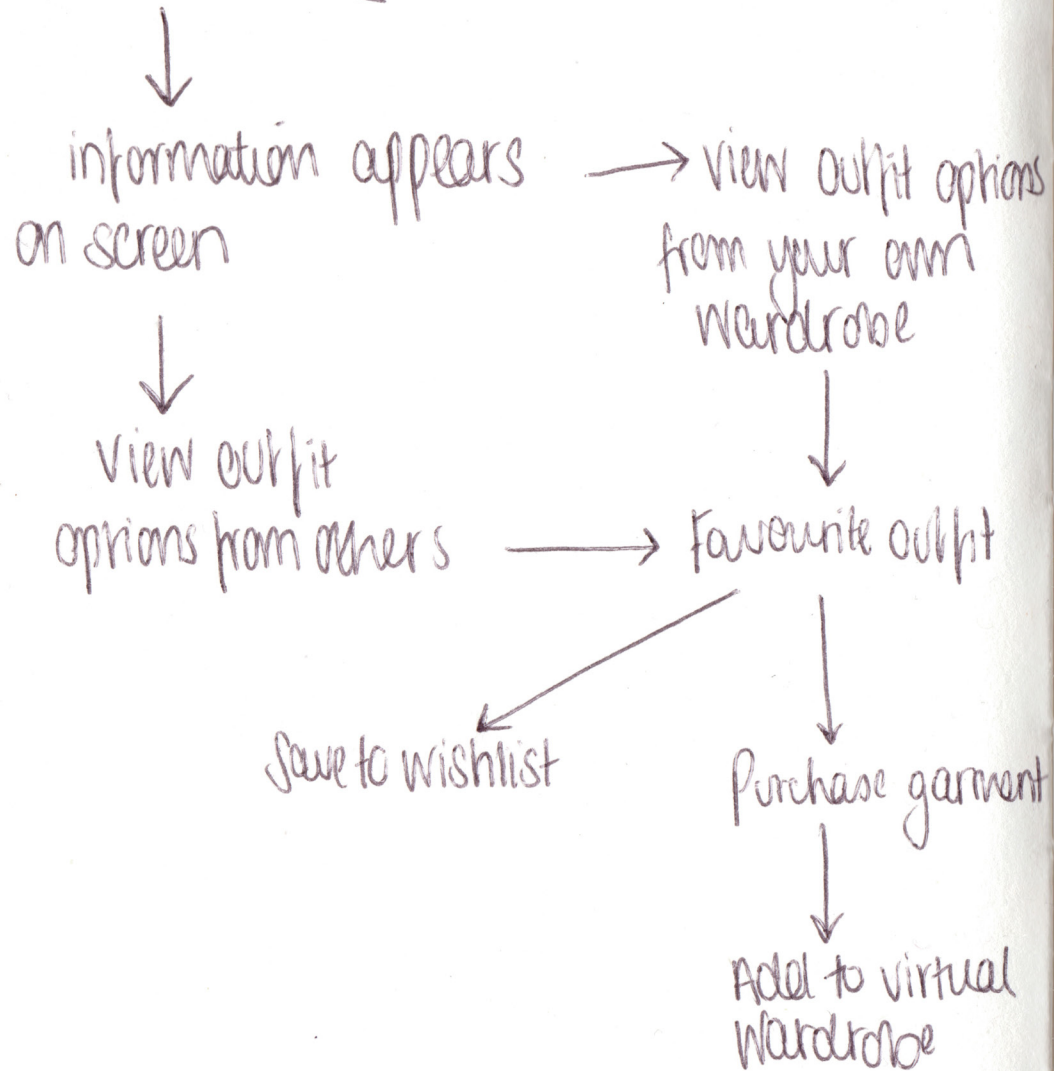 information appears
on screen
view outfit options
from your own
wardrobe
view outfit
options from others
Favourite outfit
Save to wishlist
Purchase garment
Add to virtual
wardrobe